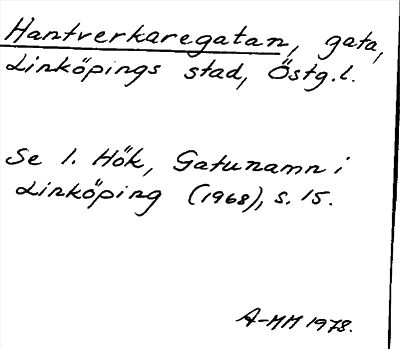 Hantverkaregatan, gata,
Linköpings stad, Östg.l.
Se I. Hök, Gatunamn i
Linköping (1968), s. 15.
A-MM 1978.